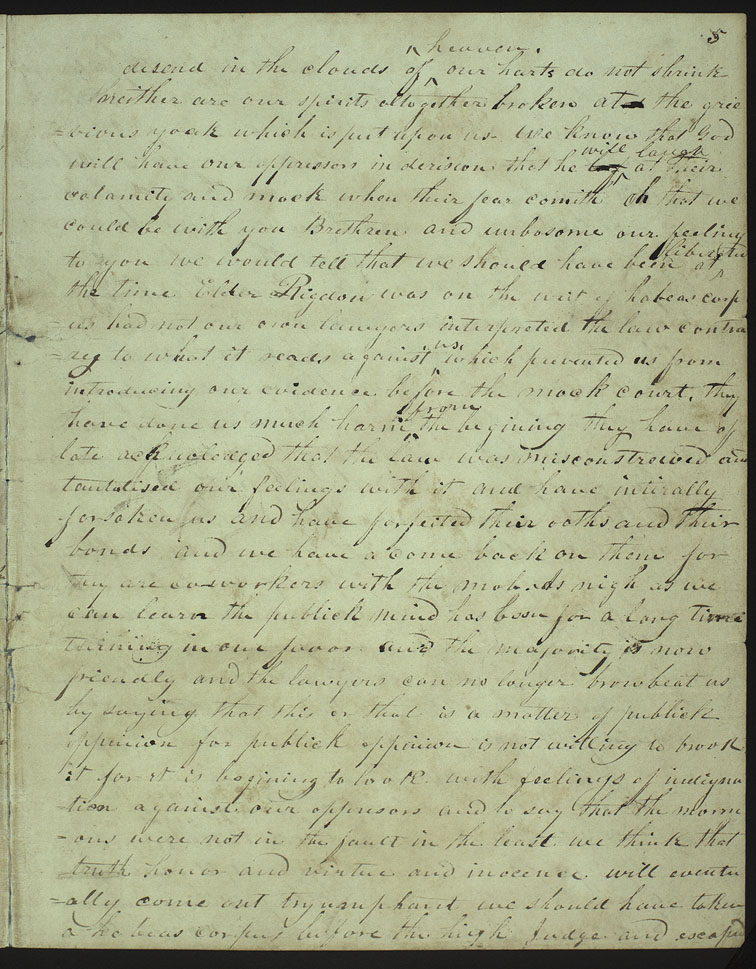 5
heaven.
desend in the clouds of ^ our harts do not shrink
neither are our spirits altogether broken at the grie
=vious yoak which is put upon us we know that God
will have our oppressors in derision that he will laugh at their
calamity and mock when their fear comith oh that we
could be with you Brethren and unbosome our feeling
to you we would tell that we should have been liberated at
the time Elder Rigdon was on the writ of habeas corp
=us had not our own lawyers interpreted the law contra
=ry to what it reads against us which prevented us from
introducing our evidence before the mock court, they
have done us much harm from the begining they have of
late acknoledged that the law was misconstrewed and
tantalised our feelings with it and have intirally
forsaken us and have forfected their oaths and their
bonds and we have a come back on them for
they are co-workers with the mob. As nigh as we
can learn the publick mind has been for a long time
turning in our favor and the majority is now
friendly and the lawyers can no longer browbeat us
by saying that this or that is a matter of publick
oppinion for publick oppinion is not willing to brook
it for it is begining to look with feelings of indigna
=tion against our oppresors and to say that the morm
=ons were not in the fault in the least we think that
truth honor and virtue and inocence will eventu
=ally come out tryumphant we should have taken
a habeas corpus before the high Judge and escaped